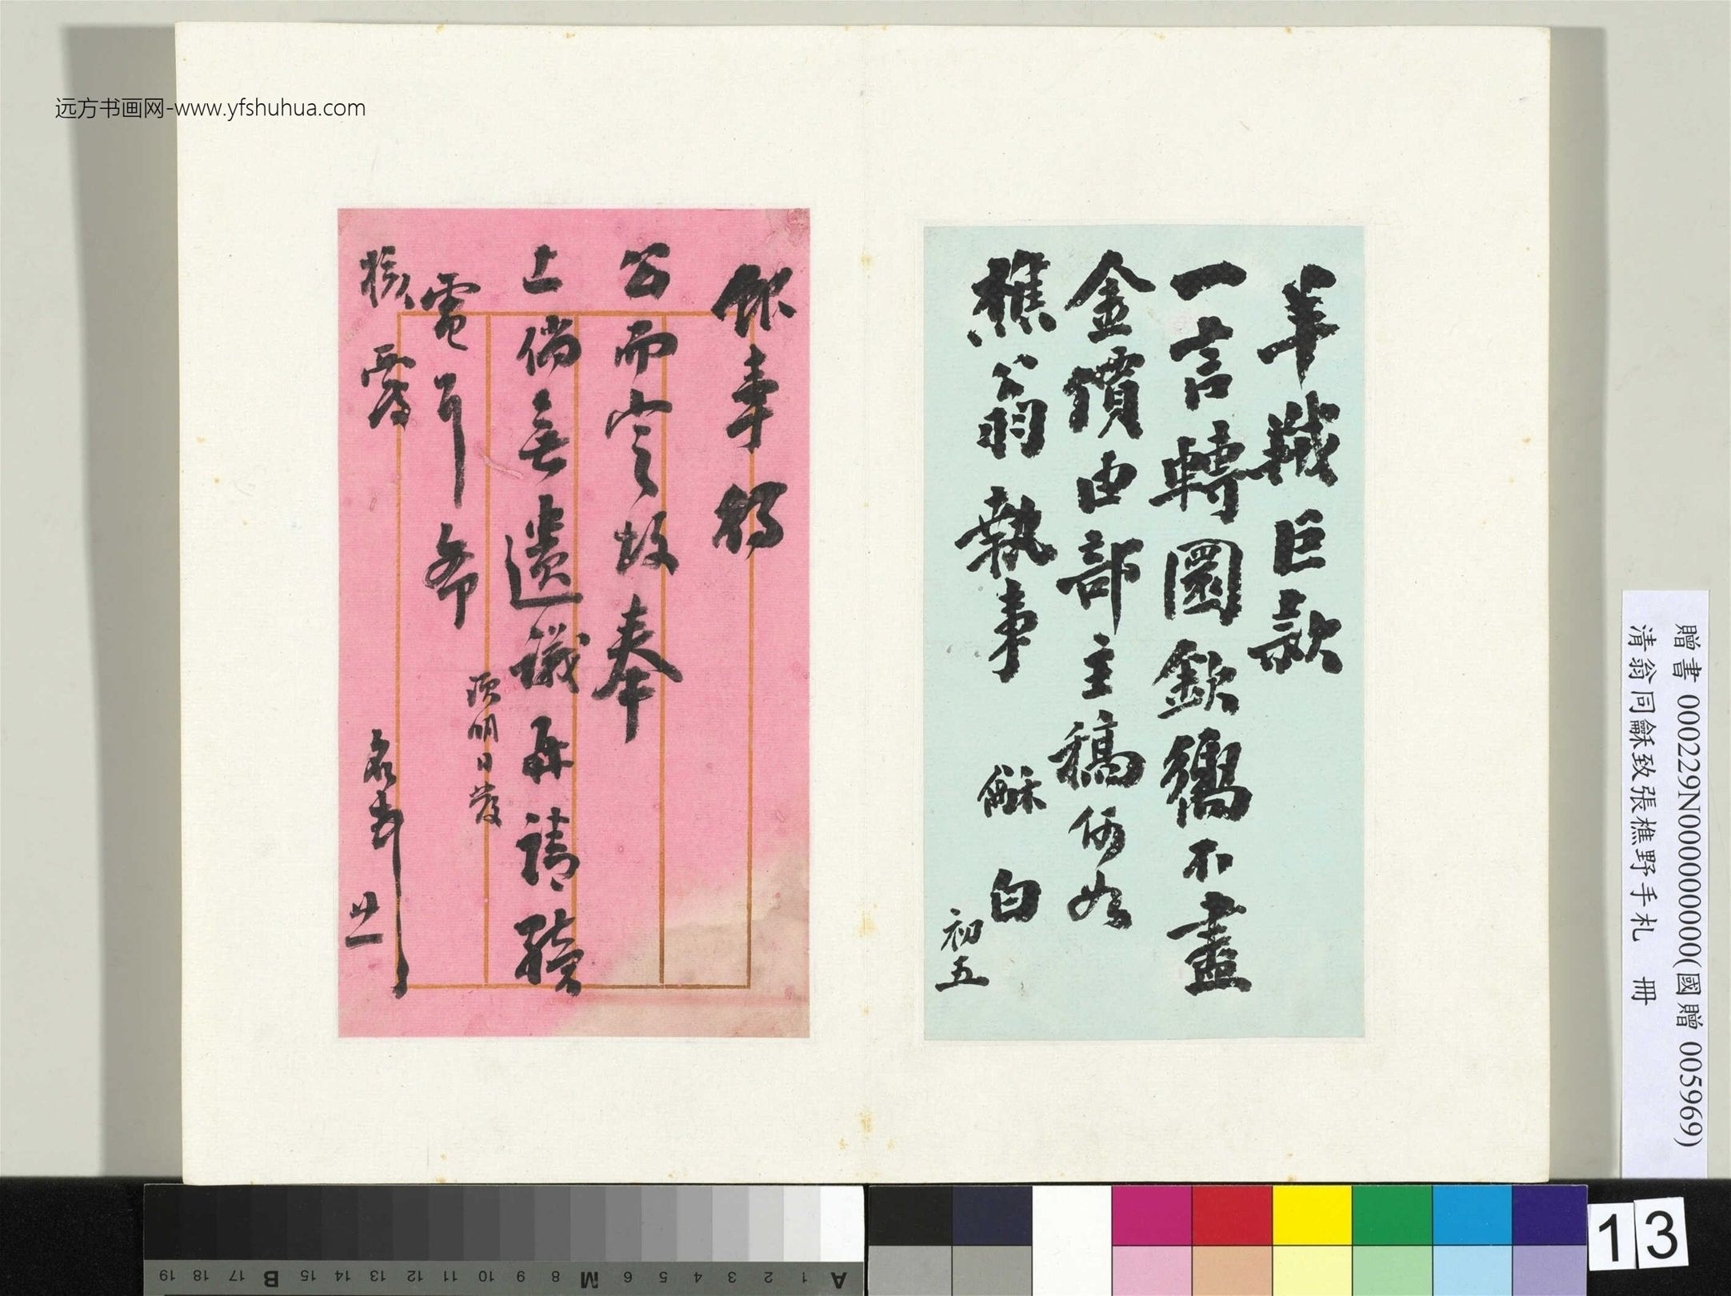 远方书画网-www.yfshuhua.com
羊羢巨款
一言轉圜欽嚮不盡
金價由部主稿何如
樵翁執事 龢白
初五
事稿
公而定故奉
上倘無遺議再請繕
須明日發
電 希
核
廿一
贈書 000229N000000000(國贈 005969)
清翁同龢致張樵野手札 冊
13
A 1 2 3 4 5 6 M 8 9 10 11 12 13 14 15 B 17 18 19